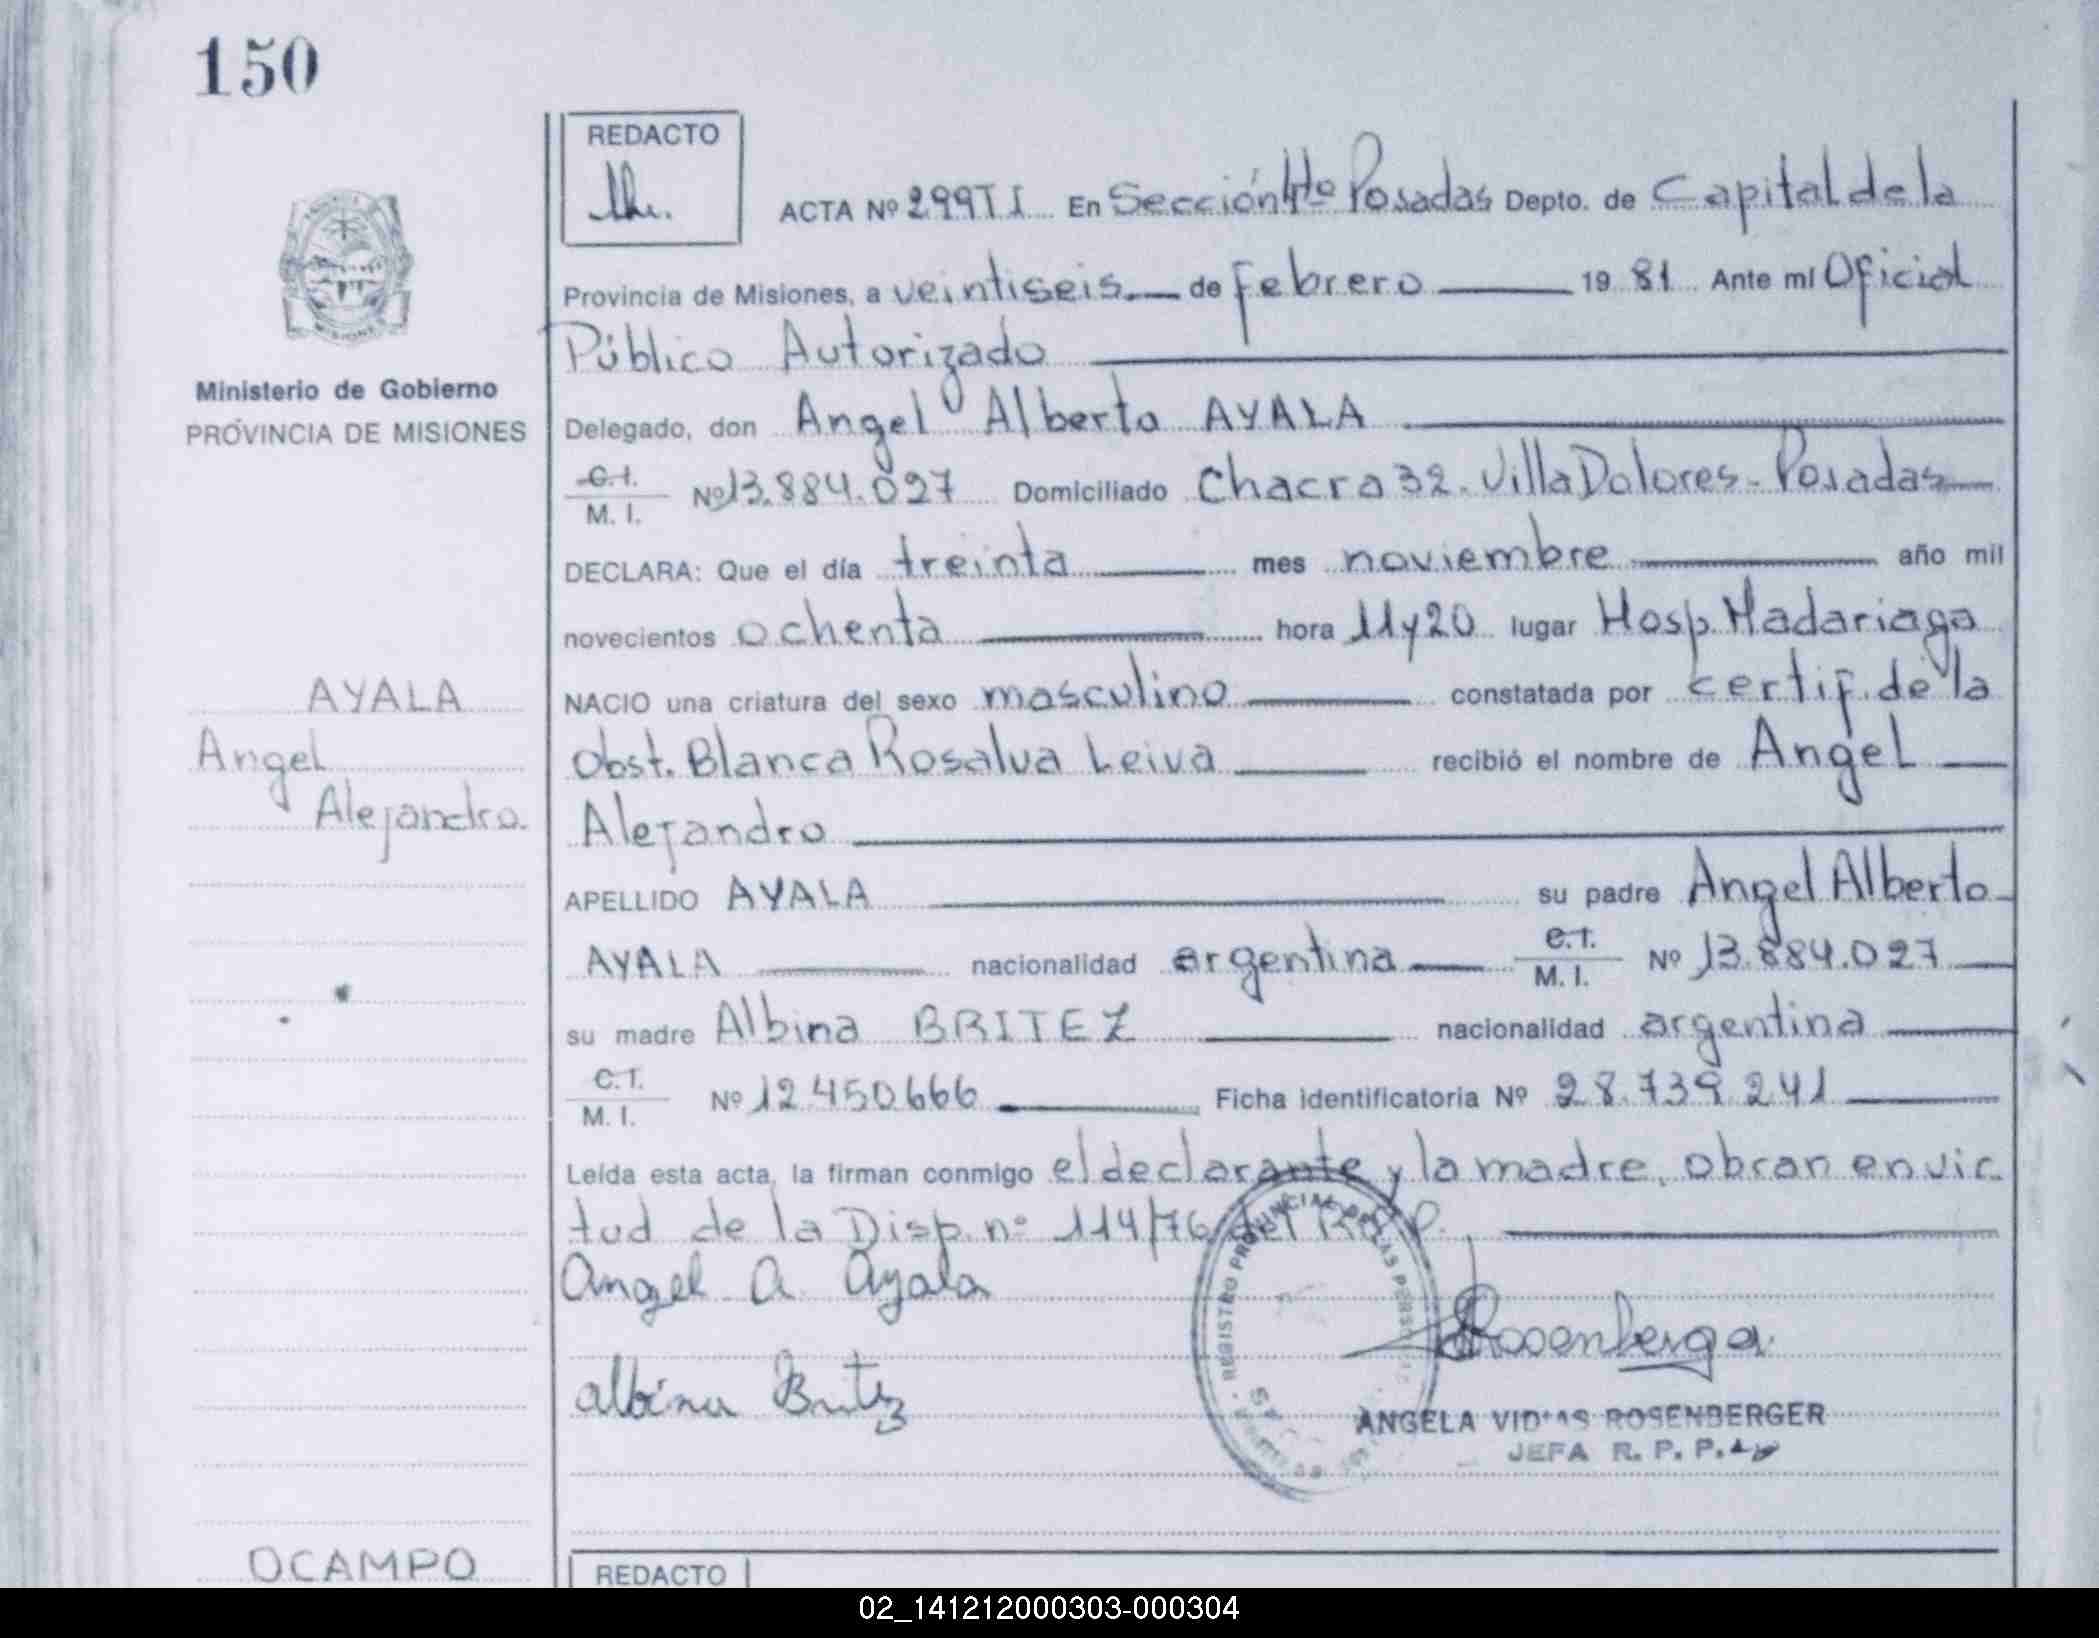 150
REDACTO
ACTA Nº 299TI En Sección 4to Posadas Depto. de Capital de la
Provincia de Misiones, a veintiseis de Febrero 19 81 Ante mí Oficial
Público Autorizado
Ministerio de Gobierno
PROVINCIA DE MISIONES
Delegado, don Angel Alberto AYALA
C.I.
M. I.
Nº 13.884.027 Domiciliado Chacra 32. Villa Dolores - Posadas
DECLARA: Que el día treinta mes noviembre año mil
novecientos ochenta hora 11y20 lugar Hosp. Madariaga
AYALA
NACIO una criatura del sexo masculino constatada por certif. de la
Angel
Obst. Blanca Rosalva Leiva recibió el nombre de Angel
Alejandro.
Alejandro
APELLIDO AYALA su padre Angel Alberto
AYALA nacionalidad argentina C.I. M. I. Nº 13.884.027
su madre Albina BRITEZ nacionalidad argentina
C.I.
M. I.
Nº 12.450.666 Ficha identificatoria Nº 28.739.241
Leída esta acta, la firman conmigo el declarante y la madre, obran en vir
tud de la Disp. nº 114/76 del R.P.P.
Angel A. Ayala
REGISTRO PROVINCIAL DE LAS PERSONAS
Rosenberger
Albina Britez
ANGELA ROSENBERGER
JEFA R. P. P.
OCAMPO
REDACTO
02_141212000303-000304